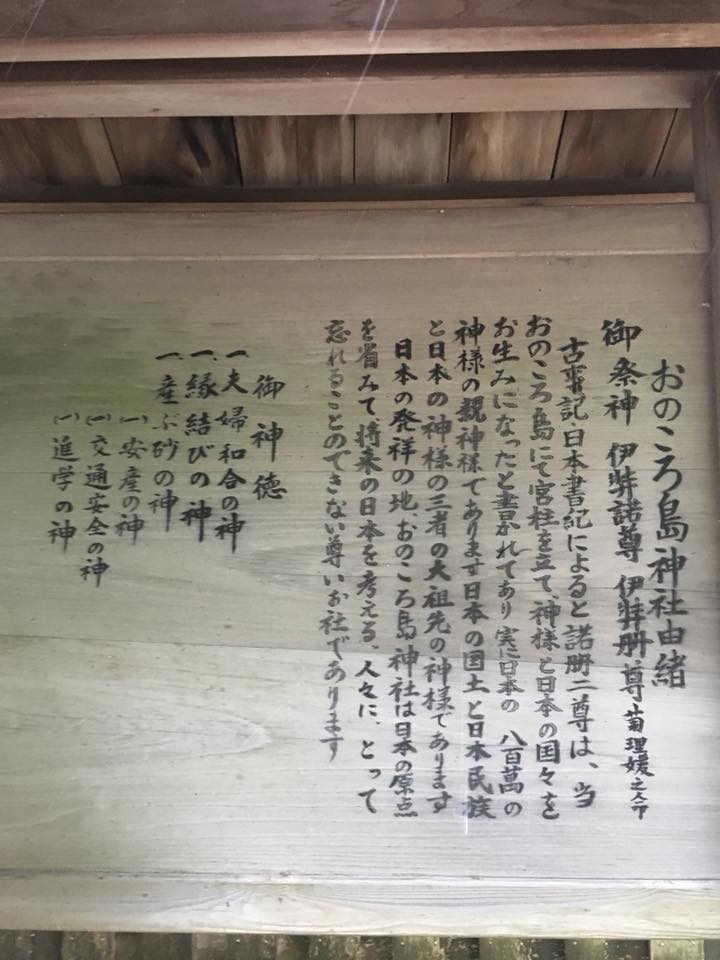 おのころ島神社由緒
御祭神 伊弉諾尊 伊弉册尊 菊理媛之命
古事記・日本書紀によると諾册二尊は、当
おのころ島にて宮柱を立て、神様と日本の国々を
お生みになったと書かれてあり 実に日本の 八百萬の
神様の親神様であります日本の国土と日本民族
と日本の神様の三者の大祖先の神様であります
日本の発祥の地、おのころ島神社は日本の原点
を省みて、将来の日本を考える、人々に、とって
忘れることのできない尊いお社であります
御神徳
一、夫婦和合の神
一、縁結びの神
一、産ぶ砂の神
(一)安産の神
(一)交通安全の神
(一)進学の神